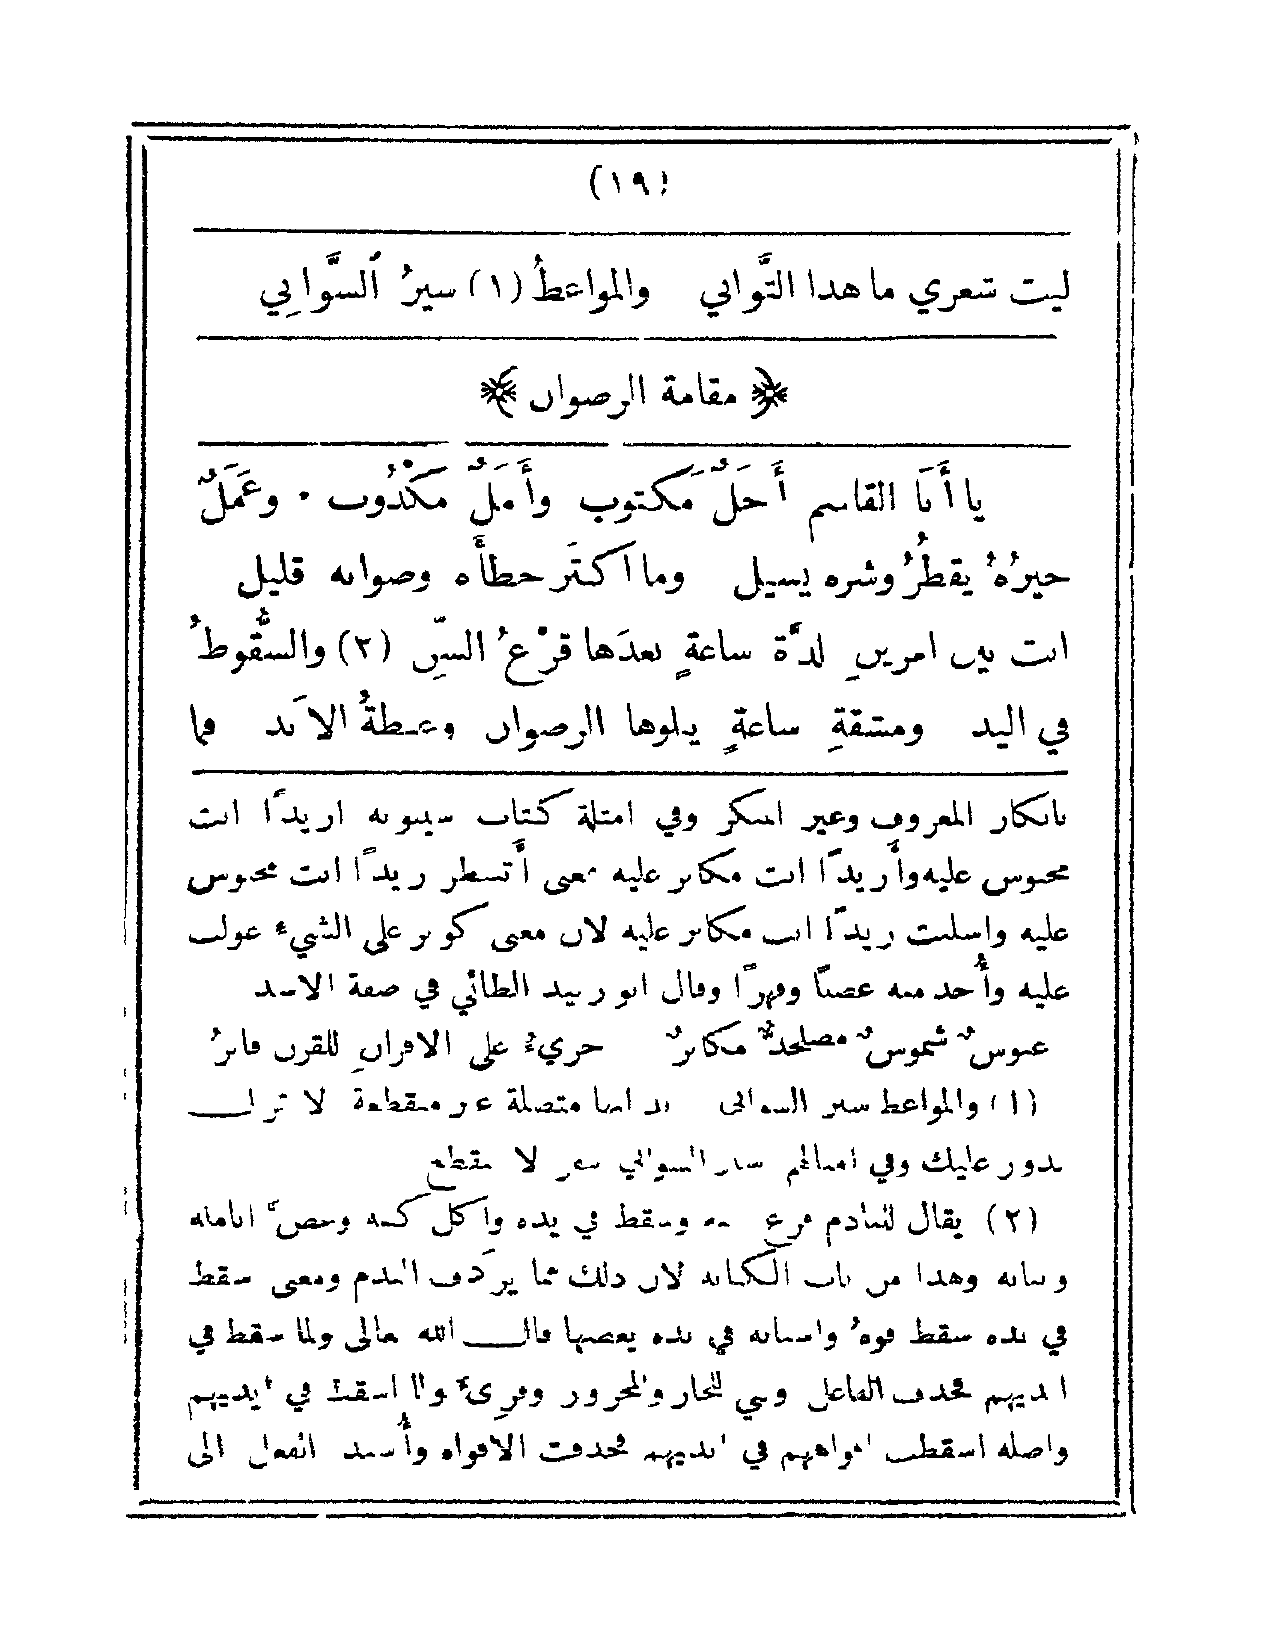 (١٩)
ليت شعري ما هذا التَّواني والمواعظُ (١) سيرُ السَّوَانِي
﴿ مقامة الرضوان ﴾
يا أَبَا القاسم أَجَلٌ مَكتوب وأَمَلٌ مَكْذُوب ٠ وعَمَلٌ
خيرُهُ يقطُرُ وشره يسيل وما اكثَر خطأَه وصوابه قليل
انت بين امرينِ لذَّة ساعةٍ بعدَها قرْعُ السِّنِّ (٢) والسُّقوطُ
في اليد ومشقةِ ساعةٍ يتلوها الرضوان وغبطةُ الابَد فما
بانكار المعروف وغير المنكر وفي امثلة كتاب سيبويه ازيدًا انت
محبوس عليه وأزيدًا انت مكابر عليه بمعنى أتنتظر زيدًا انت محبوس
عليه واسلبت زيدًا انت مكابر عليه لان معنى كوبر على الشيء غولب
عليه وأُخذ منه غصبًا وقهرًا وقال ابو زبيد الطائي في صفة الاسد
عبوسٌ شموسٌ مصلخدٌّ مكابرٌ جريءٌ على الاقرانِ للقرن قاهرُ
(١) والمواعظ سير السواني يريد انها متصلة غير منقطعة لا تزال
تدور عليك وفي امثالهم سير السواني سفر لا ينقطع
(٢) يقال للنادم قرع سنه وسقط في يده واكل كفه وعضَّ انامله
وبنانه وهذا من باب الكناية لان ذلك مما يرَادف الندم ومعنى سقط
في يده سقط فوهُ واسنانه في يده يعضها قال الله تعالى ولما سقط في
ايديهم فحذف الفاعل وبني للجار والمجرور وقرِئَ ولما اسقط في ايديهم
واصله اسقطت افواههم في ايديهم فحذفت الافواه وأُسند الفعل الى